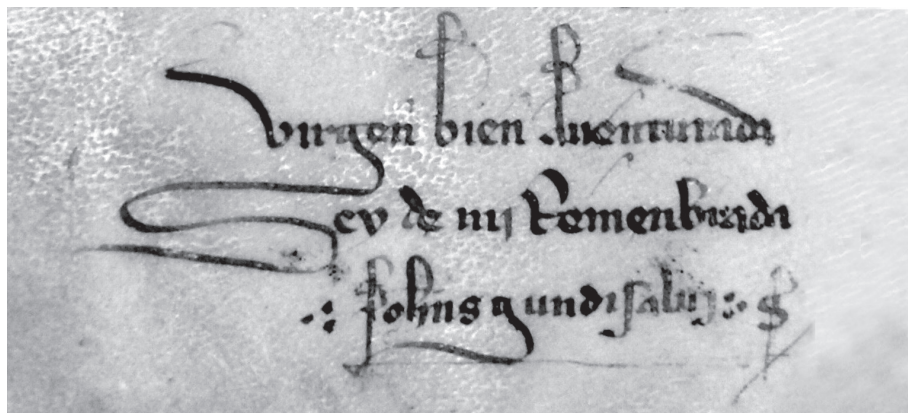 virgen bien auenturada
Sey de mj Remenbrada
Johns gundisalui